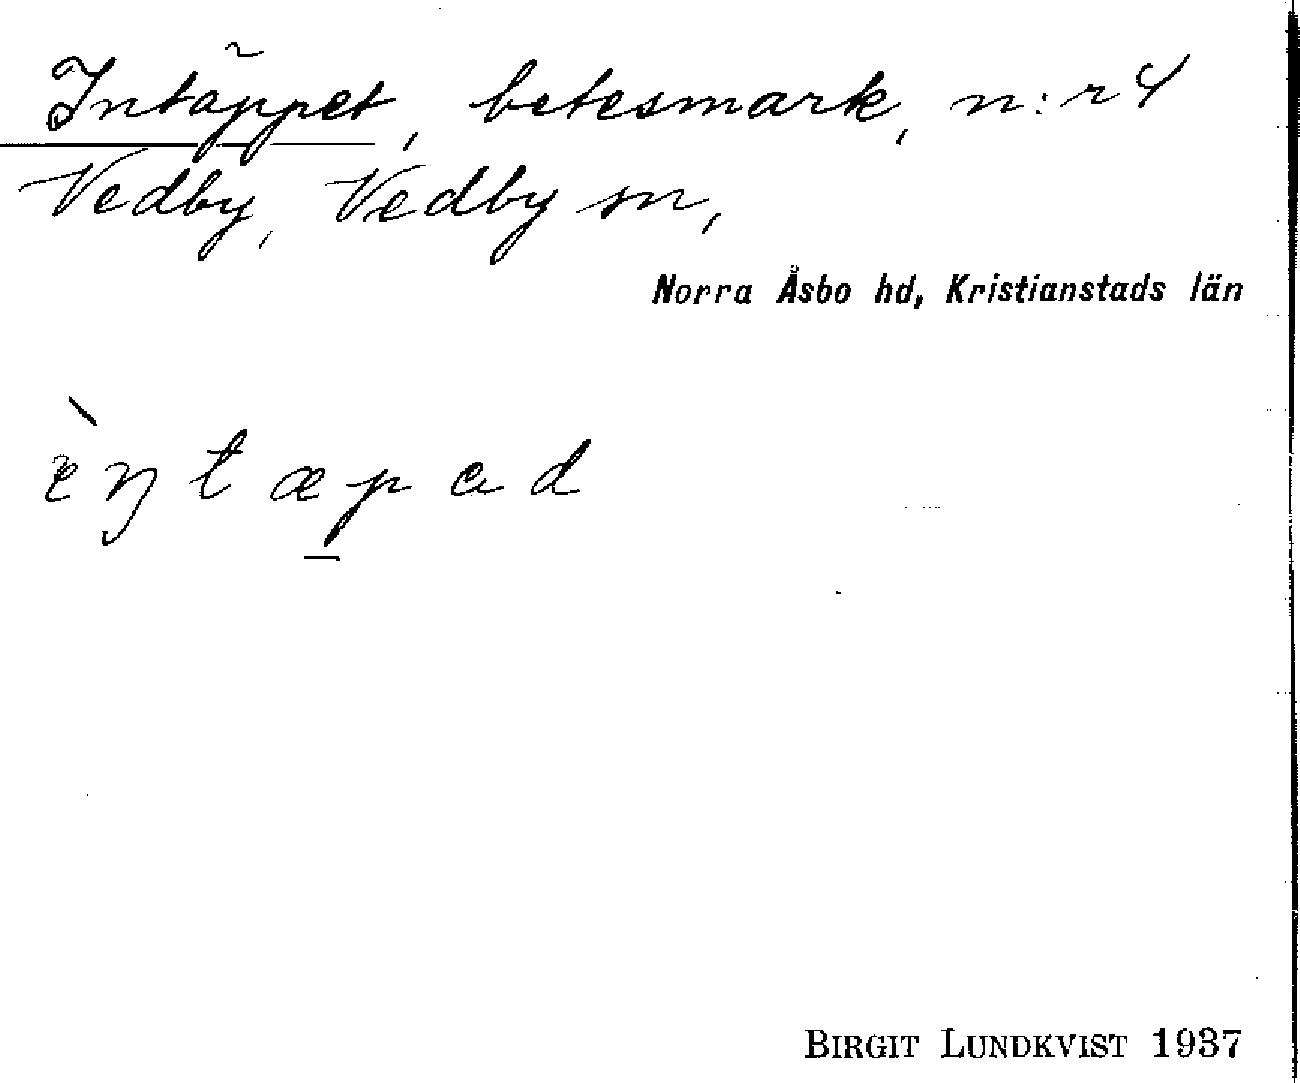 Intäppet, betesmark, n:r 4
Vedby, Vedby sn,
Norra Åsbo hd, Kristianstads län
èŋtæpad
BIRGIT LUNDKVIST 1937